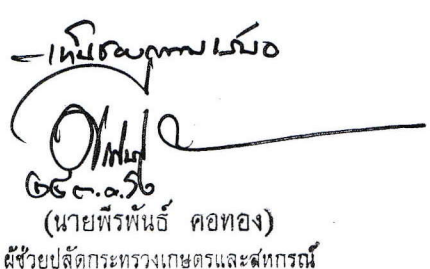 - เห็นชอบตามเสนอ
(นายพีรพันธ์ คอทอง)
ผู้ช่วยปลัดกระทรวงเกษตรและสหกรณ์